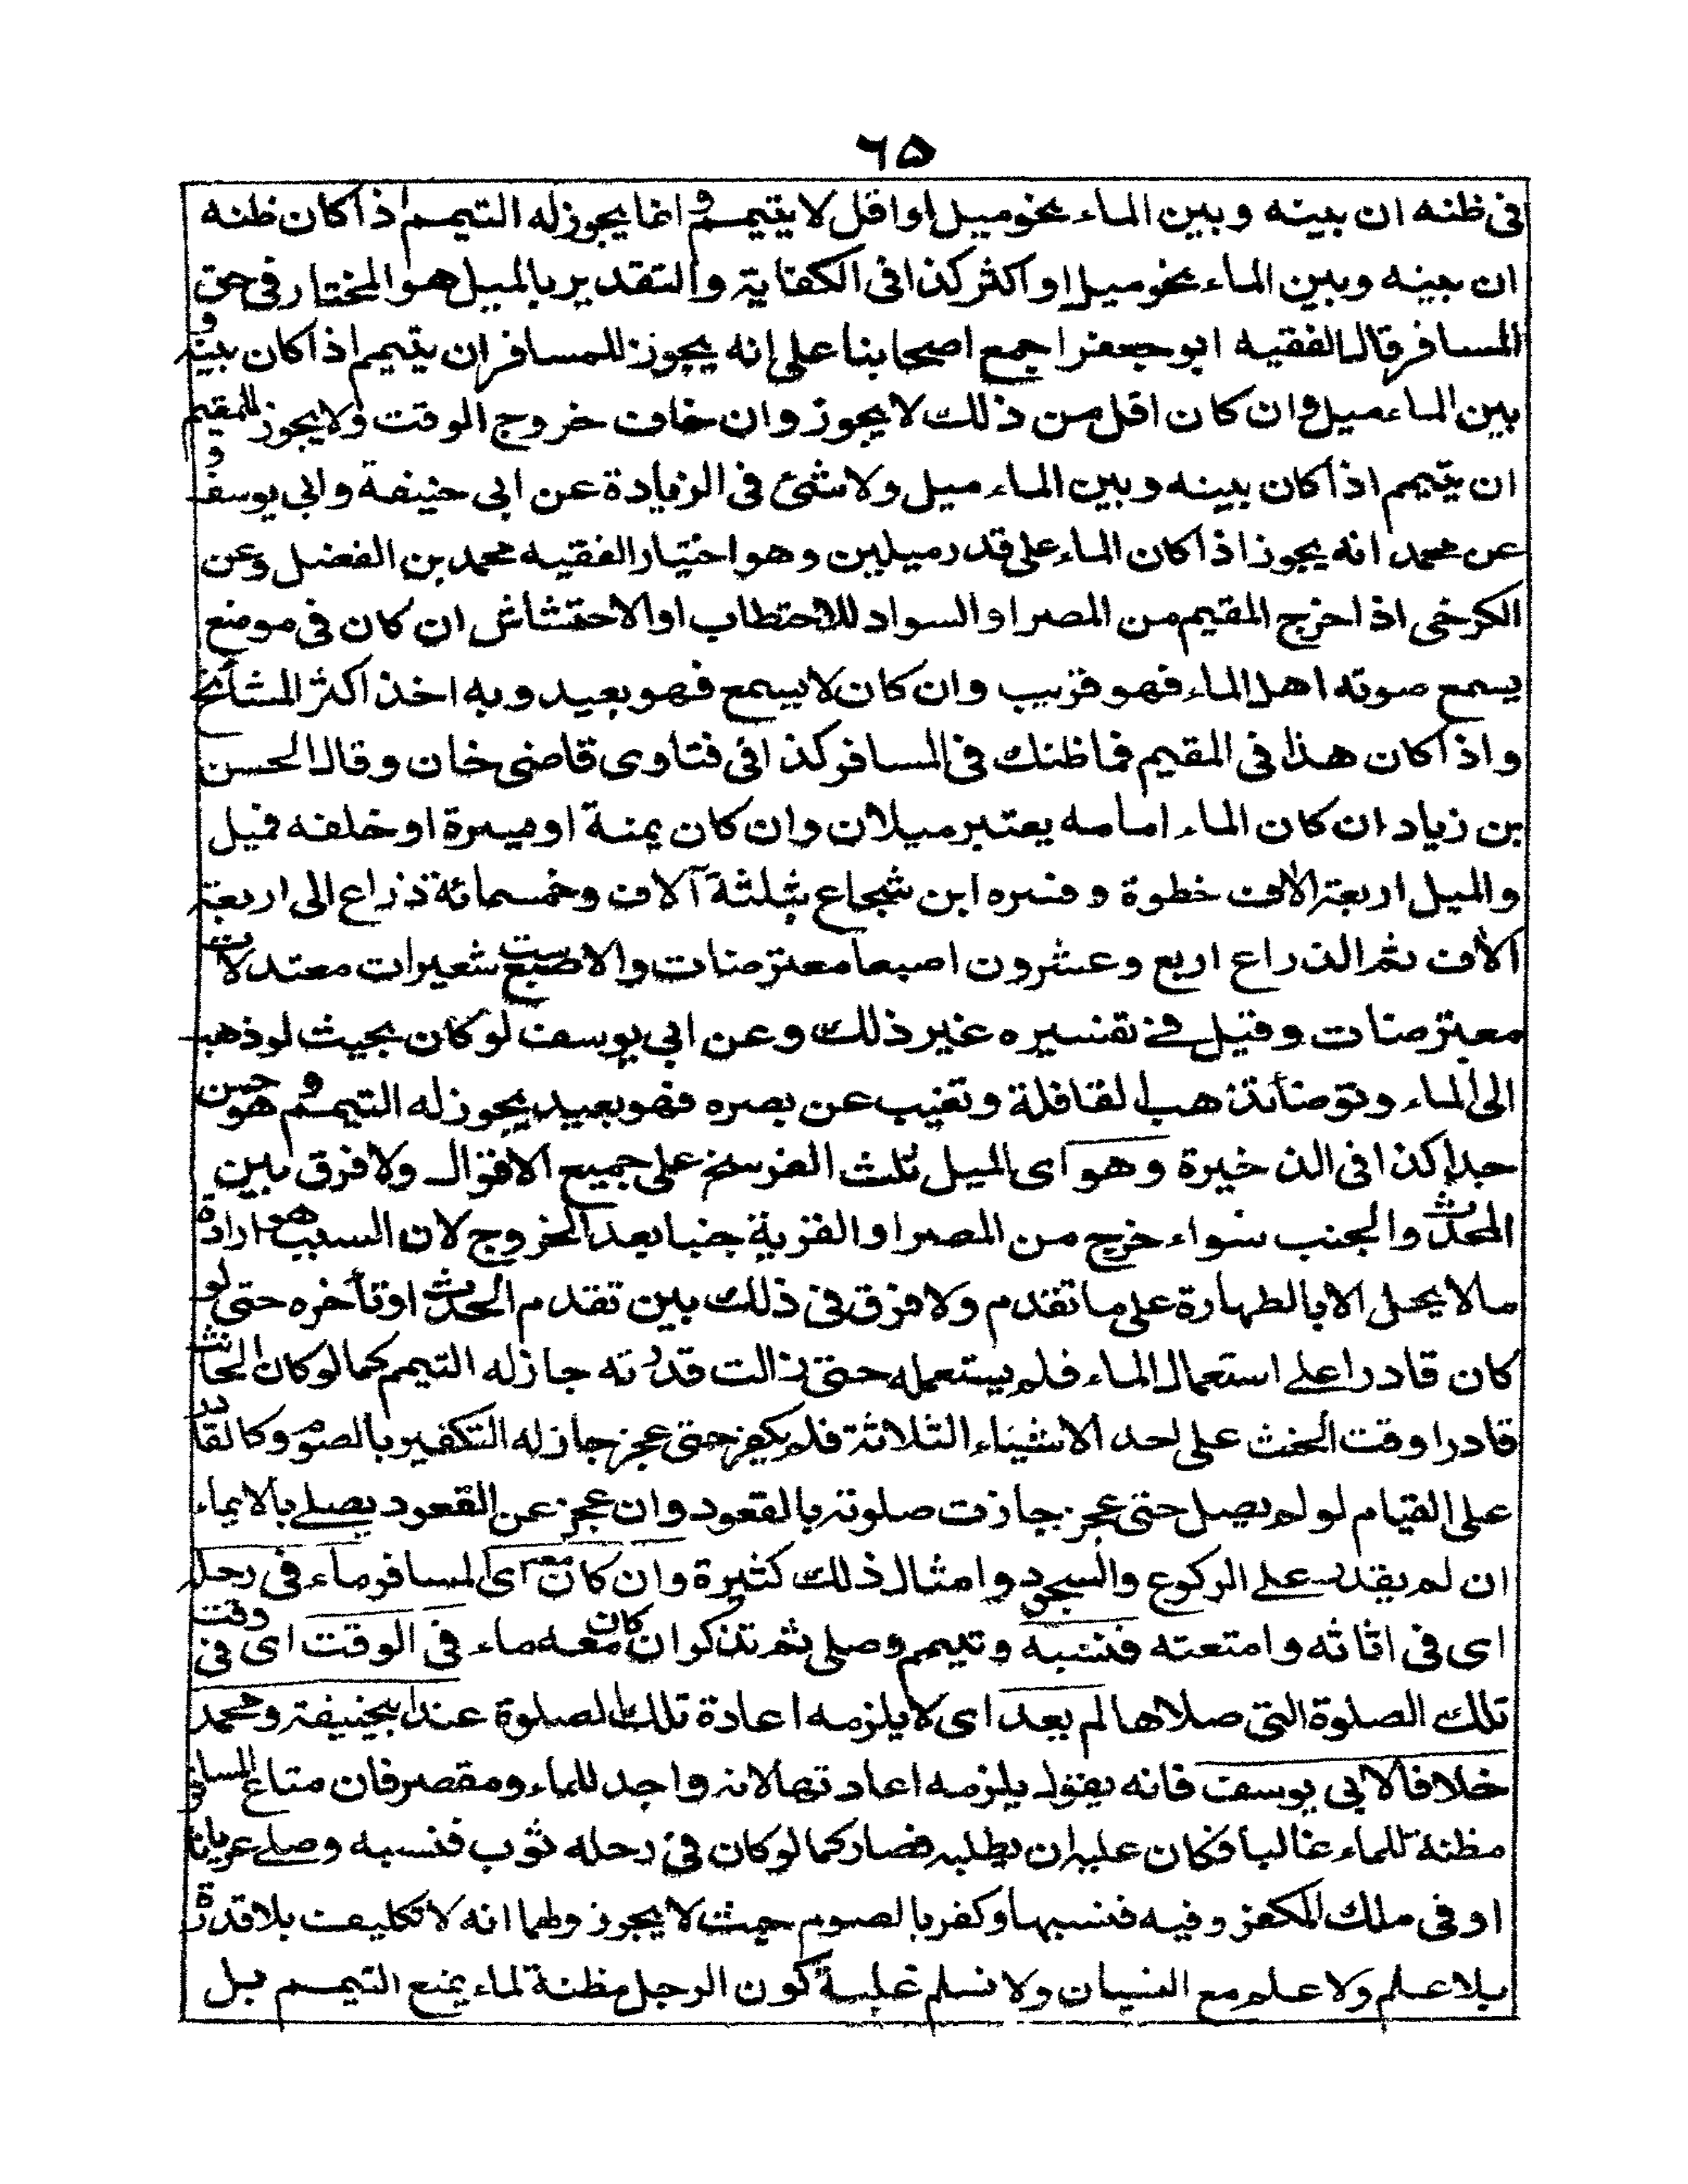 ٦٥
فى ظنه ان بينه وبين الماء نحو ميل او اقل لا يتيمم و انما يجوز له التيمم اذا كان ظنه
ان بينه وبين الماء نحو ميل او اكثر كذا فى الكفاية والتقدير بالميل هو المختار فى حق
المسافر قال الفقيه ابو جعفر اجمع اصحابنا على انه يجوز للمسافر ان يتيمم اذا كان بينه و
بين الماء ميل وان كان اقل من ذلك لا يجوز وان خاف خروج الوقت ولا يجوز للمقيم
ان يتيمم اذا كان بينه وبين الماء ميل ولا شئ فى الزيادة عن ابى حنيفة وابى يوسف و
عن محمد انه يجوز اذا كان الماء على قدر ميلين وهو اختيار الفقيه محمد بن الفضل وعن
الكرخى اذا خرج المقيم من المصر او السواد للاحتطاب او الاحتشاش ان كان فى موضع
يسمع صوته اهل الماء فهو قريب وان كان لا يسمع فهو بعيد وبه اخذ اكثر المشائخ
واذا كان هذا فى المقيم فما ظنك فى المسافر كذا فى فتاوى قاضى خان وقال الحسن
بن زياد ان كان الماء امامه يعتبر ميلان وان كان يمنة او ميسرة او خلفه فميل
والميل اربعة الاف خطوة وفسره ابن شجاع بثلثة آلاف وخمسمائة ذراع الى اربعة
الاف ثم الذراع اربع وعشرون اصبعا معترضات والاصبع ست شعيرات معتدلات
معترضات وقيل فى تفسيره غير ذلك وعن ابى يوسف لو كان بحيث لو ذهب
الى الماء وتوضأ تذهب القافلة وتغيب عن بصره فهو بعيد يجوز له التيمم و هو حسن
جدا كذا فى الذخيرة وهو اى الميل ثلث الفرسخ على جميع الاقوال ولا فرق بين
المحدث والجنب سواء خرج من المصر او القرية جنبا بعد الخروج لان السبب هو ارادة
ما لا يحل الا بالطهارة على ما تقدم ولا فرق فى ذلك بين تقدم الحدث او تأخره حتى لو
كان قادرا على استعمال الماء فلم يستعمله حتى زالت قدرته جاز له التيمم كما لو كان الحانث
قادرا وقت الحنث على احد الاشياء الثلاثة فلم يكفر حتى عجز جاز له التكفير بالصوم وكالقادر
على القيام لو لم يصل حتى عجز جازت صلوته بالقعود وان عجز عن القعود يصلى بالايماء
ان لم يقدر على الركوع والسجود وامثال ذلك كثيرة وان كان مع اى لمسافر ماء فى رحله
اى فى اثاثه وامتعته فنسيه وتيمم وصلى ثم تذكر ان كان معه ماء فى الوقت اى فى وقت
تلك الصلوة التى صلاها لم يعد اى لا يلزمه اعادة تلك الصلوة عند ابيحنيفة ومحمد
خلافا لابى يوسف فانه يقول يلزمه اعادتها لانه واجد للماء ومقصر فان متاع المسافر
مظنة للماء غالبا فكان عليه ان يطلبه فصار كما لو كان فى رحله ثوب فنسيه وصلى عريانا
او فى ملك المكفر رقبة فنسيها وكفر بالصوم حيث لا يجوز ولهما انه لا تكليف بلا قدرة
بلا علم ولا علم مع النسيان ولا نسلم غلبة كون الرحل مظنة لماء يمنع التيمم بل